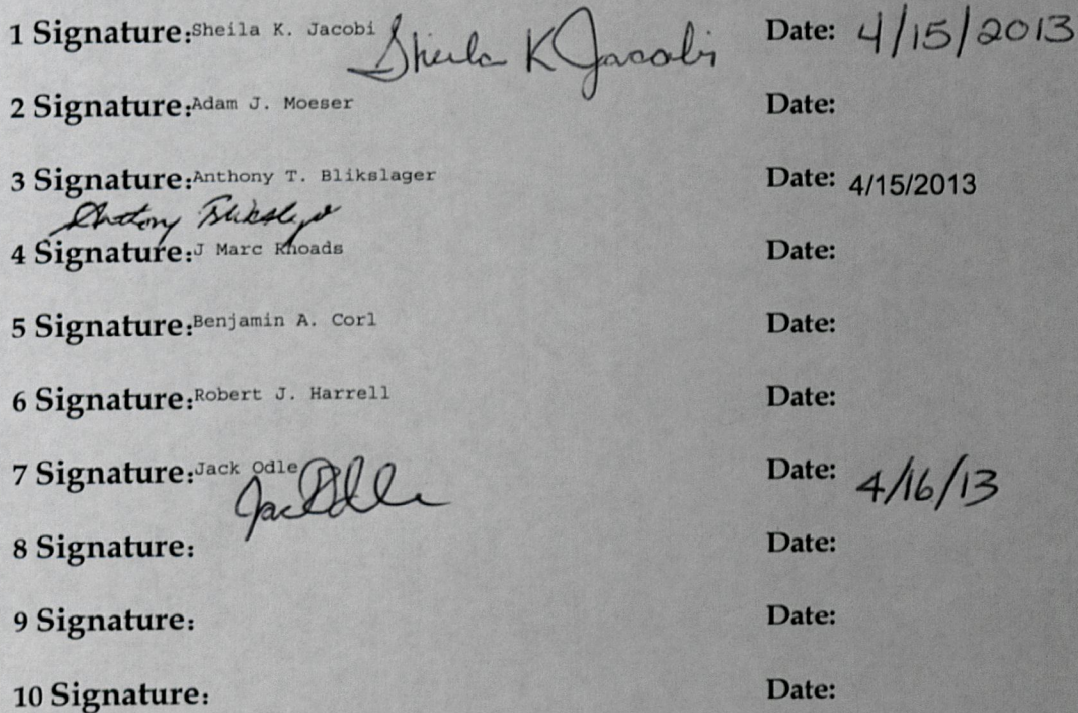 1 Signature: Sheila K. Jacobi Sheila K Jacobi Date: 4/15/2013
2 Signature: Adam J. Moeser Date:
3 Signature: Anthony T. Blikslager Date: 4/15/2013
Anthony Blikslager
4 Signature: J Marc Rhoads Date:
5 Signature: Benjamin A. Corl Date:
6 Signature: Robert J. Harrell Date:
7 Signature: Jack Odle Jack Odle Date: 4/16/13
8 Signature: Date:
9 Signature: Date:
10 Signature: Date: